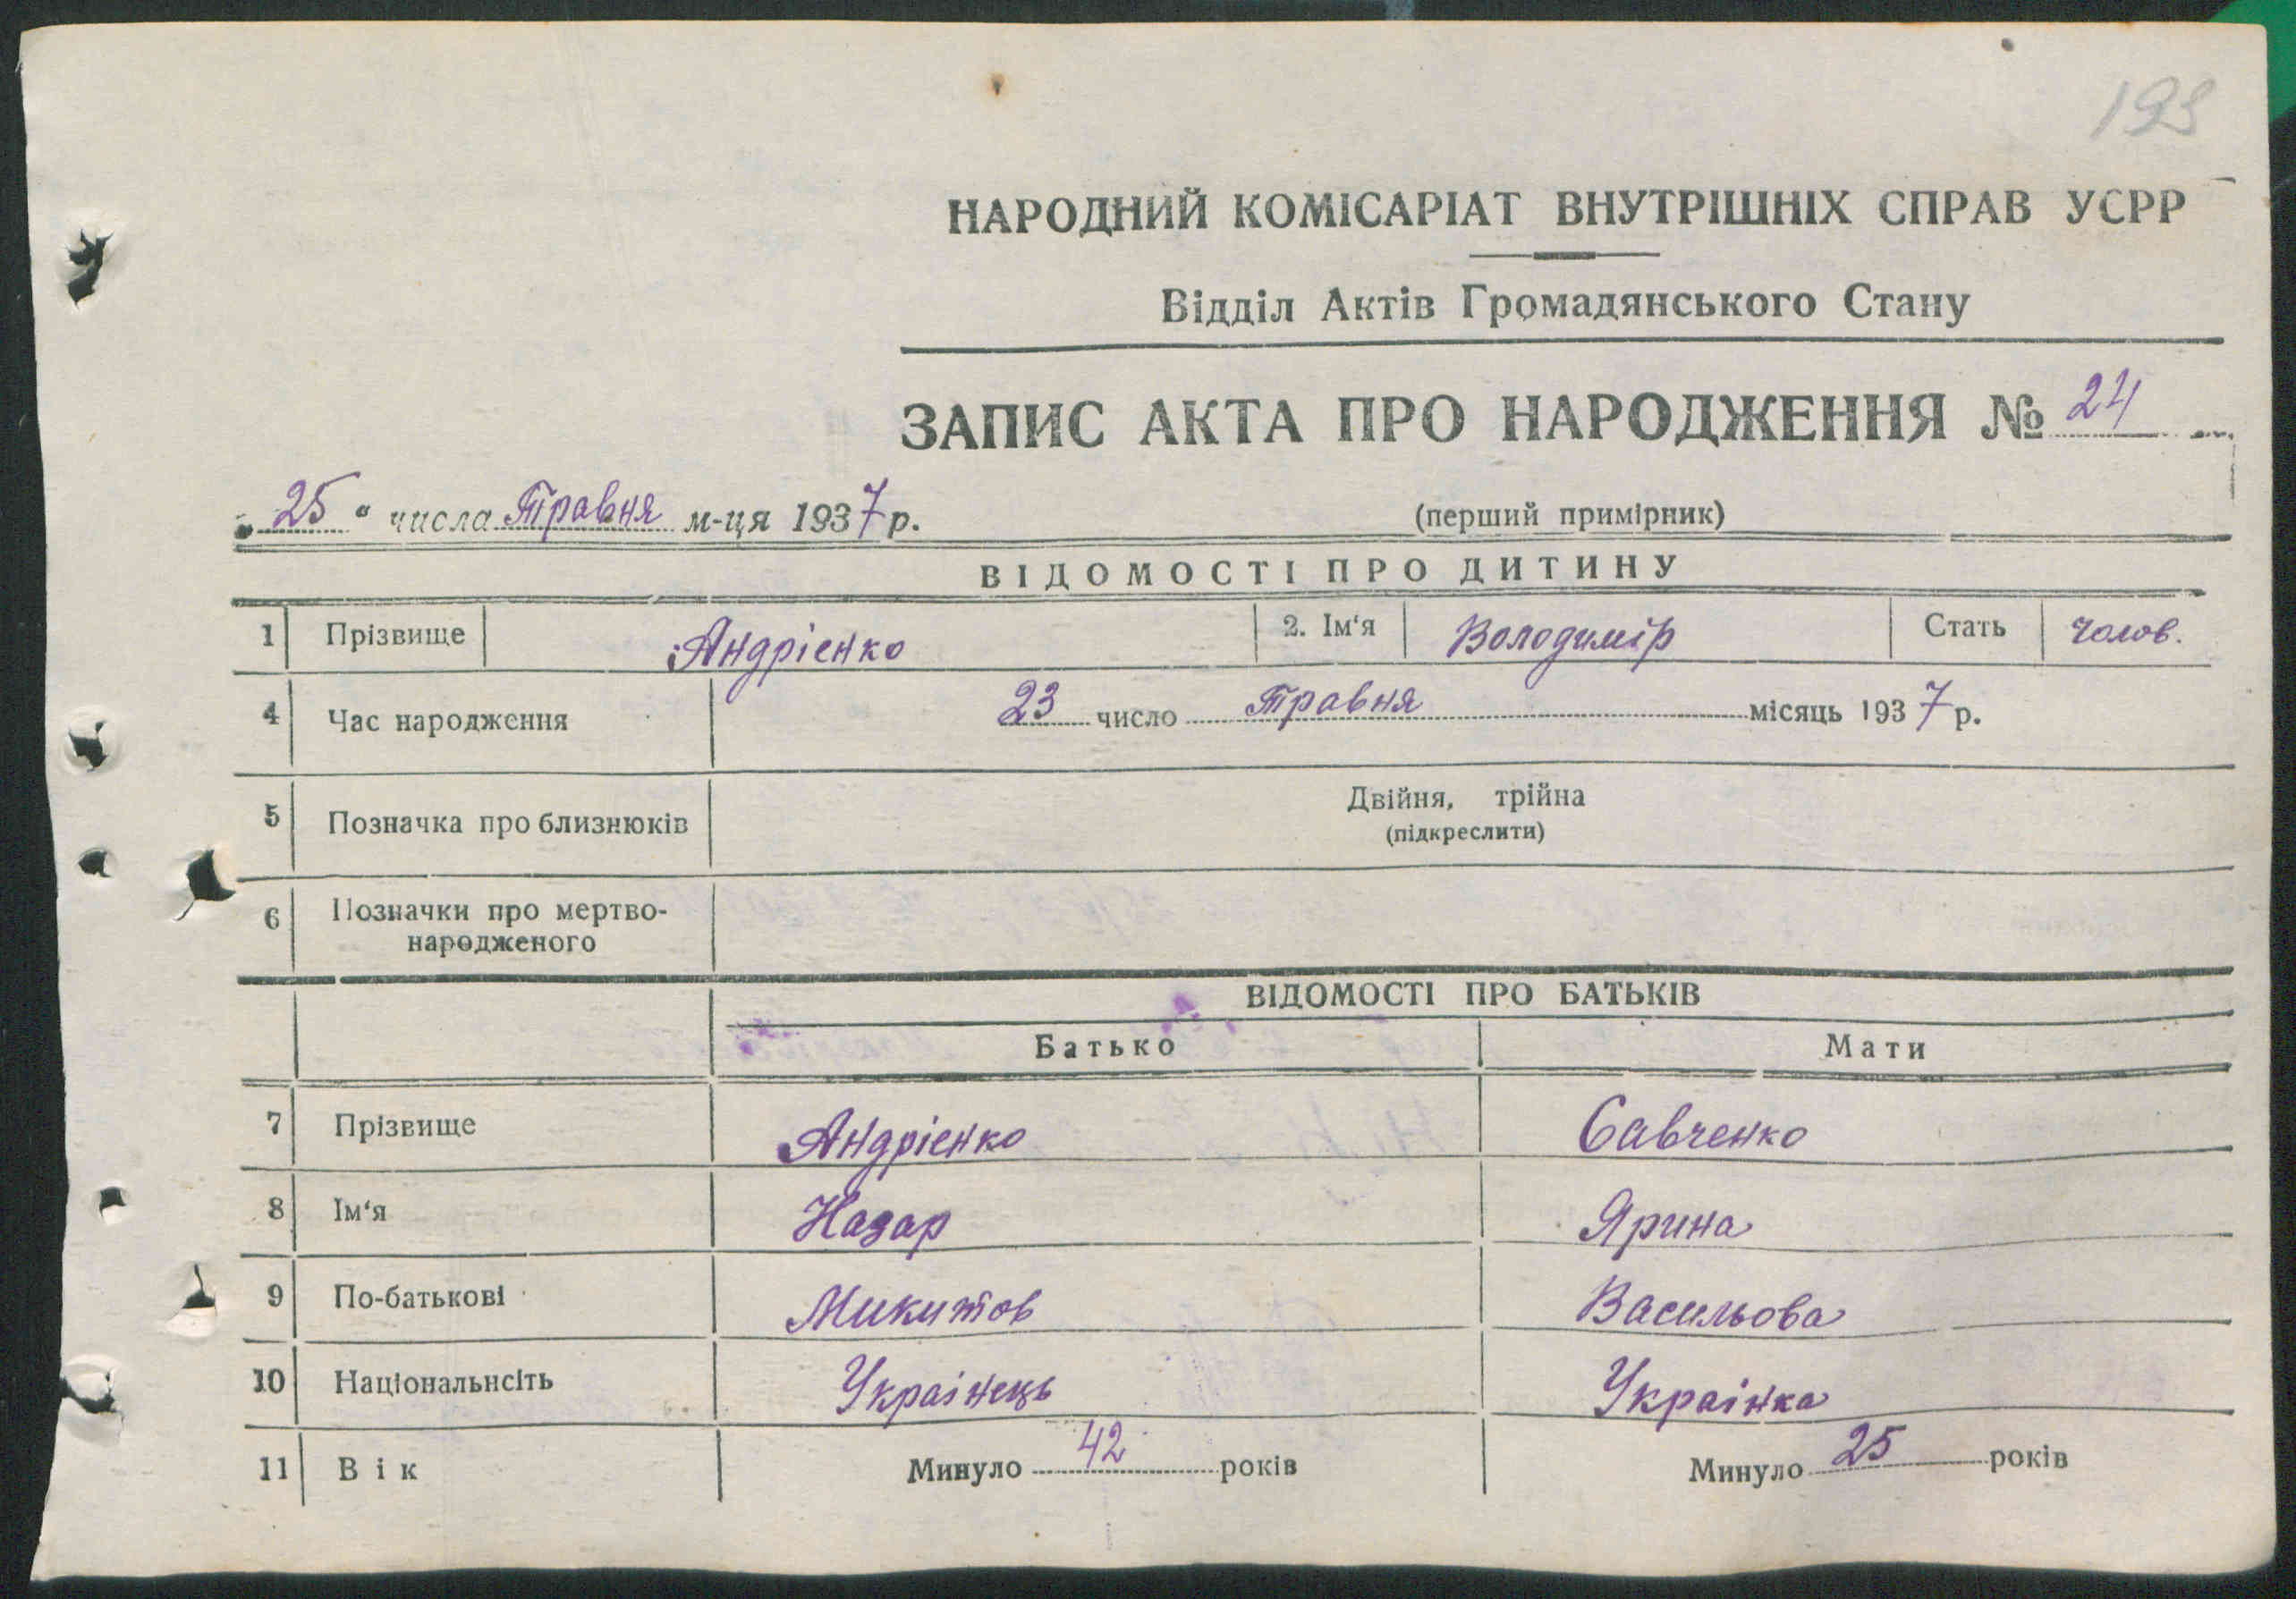 193
НАРОДНИЙ КОМІСАРІАТ ВНУТРІШНІХ СПРАВ УСРР
Відділ Актів Громадянського Стану
ЗАПИС АКТА ПРО НАРОДЖЕННЯ № 24
„25“ числа Травня м-ця 1937 р.
(перший примірник)
ВІДОМОСТІ ПРО ДИТИНУ
1 Прізвище Андрієнко 2. Ім‘я Володимір Стать чолов.
4 Час народження 23 число Травня місяць 1937 р.
5 Позначка про близнюків Двійня, трійна
(підкреслити)
6 Позначки про мертво-
народженого
ВІДОМОСТІ ПРО БАТЬКІВ
Батько Мати
7 Прізвище Андрієнко Савченко
8 Ім‘я Назар Ярина
9 По-батькові Микитов Васильова
10 Національнсіть Украінець Украінка
11 Вік Минуло 42 років Минуло 25 років